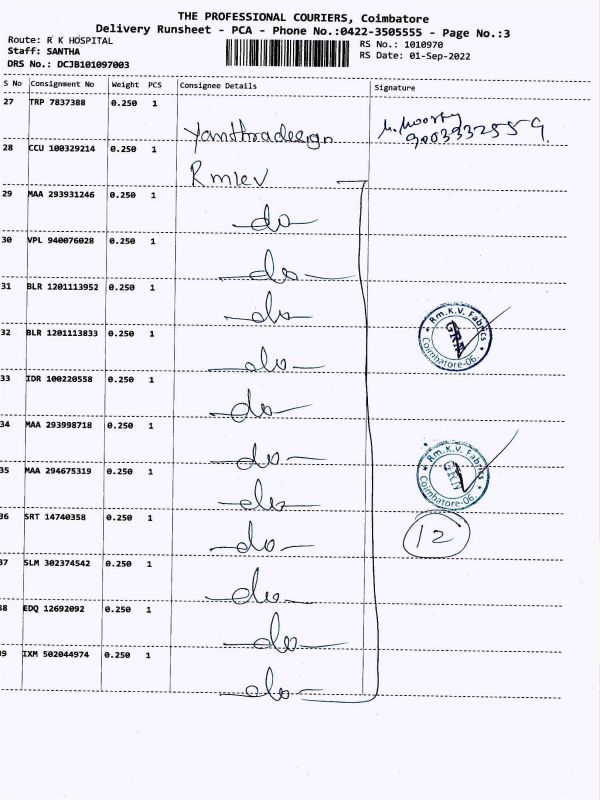 THE PROFESSIONAL COURIERS, Coimbatore
Delivery Runsheet - PCA - Phone No.:0422-3505555 - Page No.:3
Route: R K HOSPITAL
Staff: SANTHA
DRS No.: DCJB101097003
RS No.: 1010970
RS Date: 01-Sep-2022
S No Consignment No Weight PCS Consignee Details Signature
27 TRP 7837388 0.250 1
Yanthradesign
28 CCU 100329214 0.250 1
Rmkv
29 MAA 293931246 0.250 1 -do-
30 VPL 940076028 0.250 1 -do-
31 BLR 1201113952 0.250 1 -do-
32 BLR 1201113833 0.250 1 -do-
33 IDR 100220558 0.250 1 -do-
34 MAA 293998718 0.250 1 -do-
35 MAA 294675319 0.250 1 -do-
36 SRT 14740358 0.250 1 -do-
37 SLM 302374542 0.250 1 -do-
38 EDQ 12692092 0.250 1 -do-
39 IXM 502044974 0.250 1 -do-
Rm.K.V. Fabrics
GRN
Coimbatore-06.
Rm.K.V. Fabrics
GRN
Coimbatore-06.
12